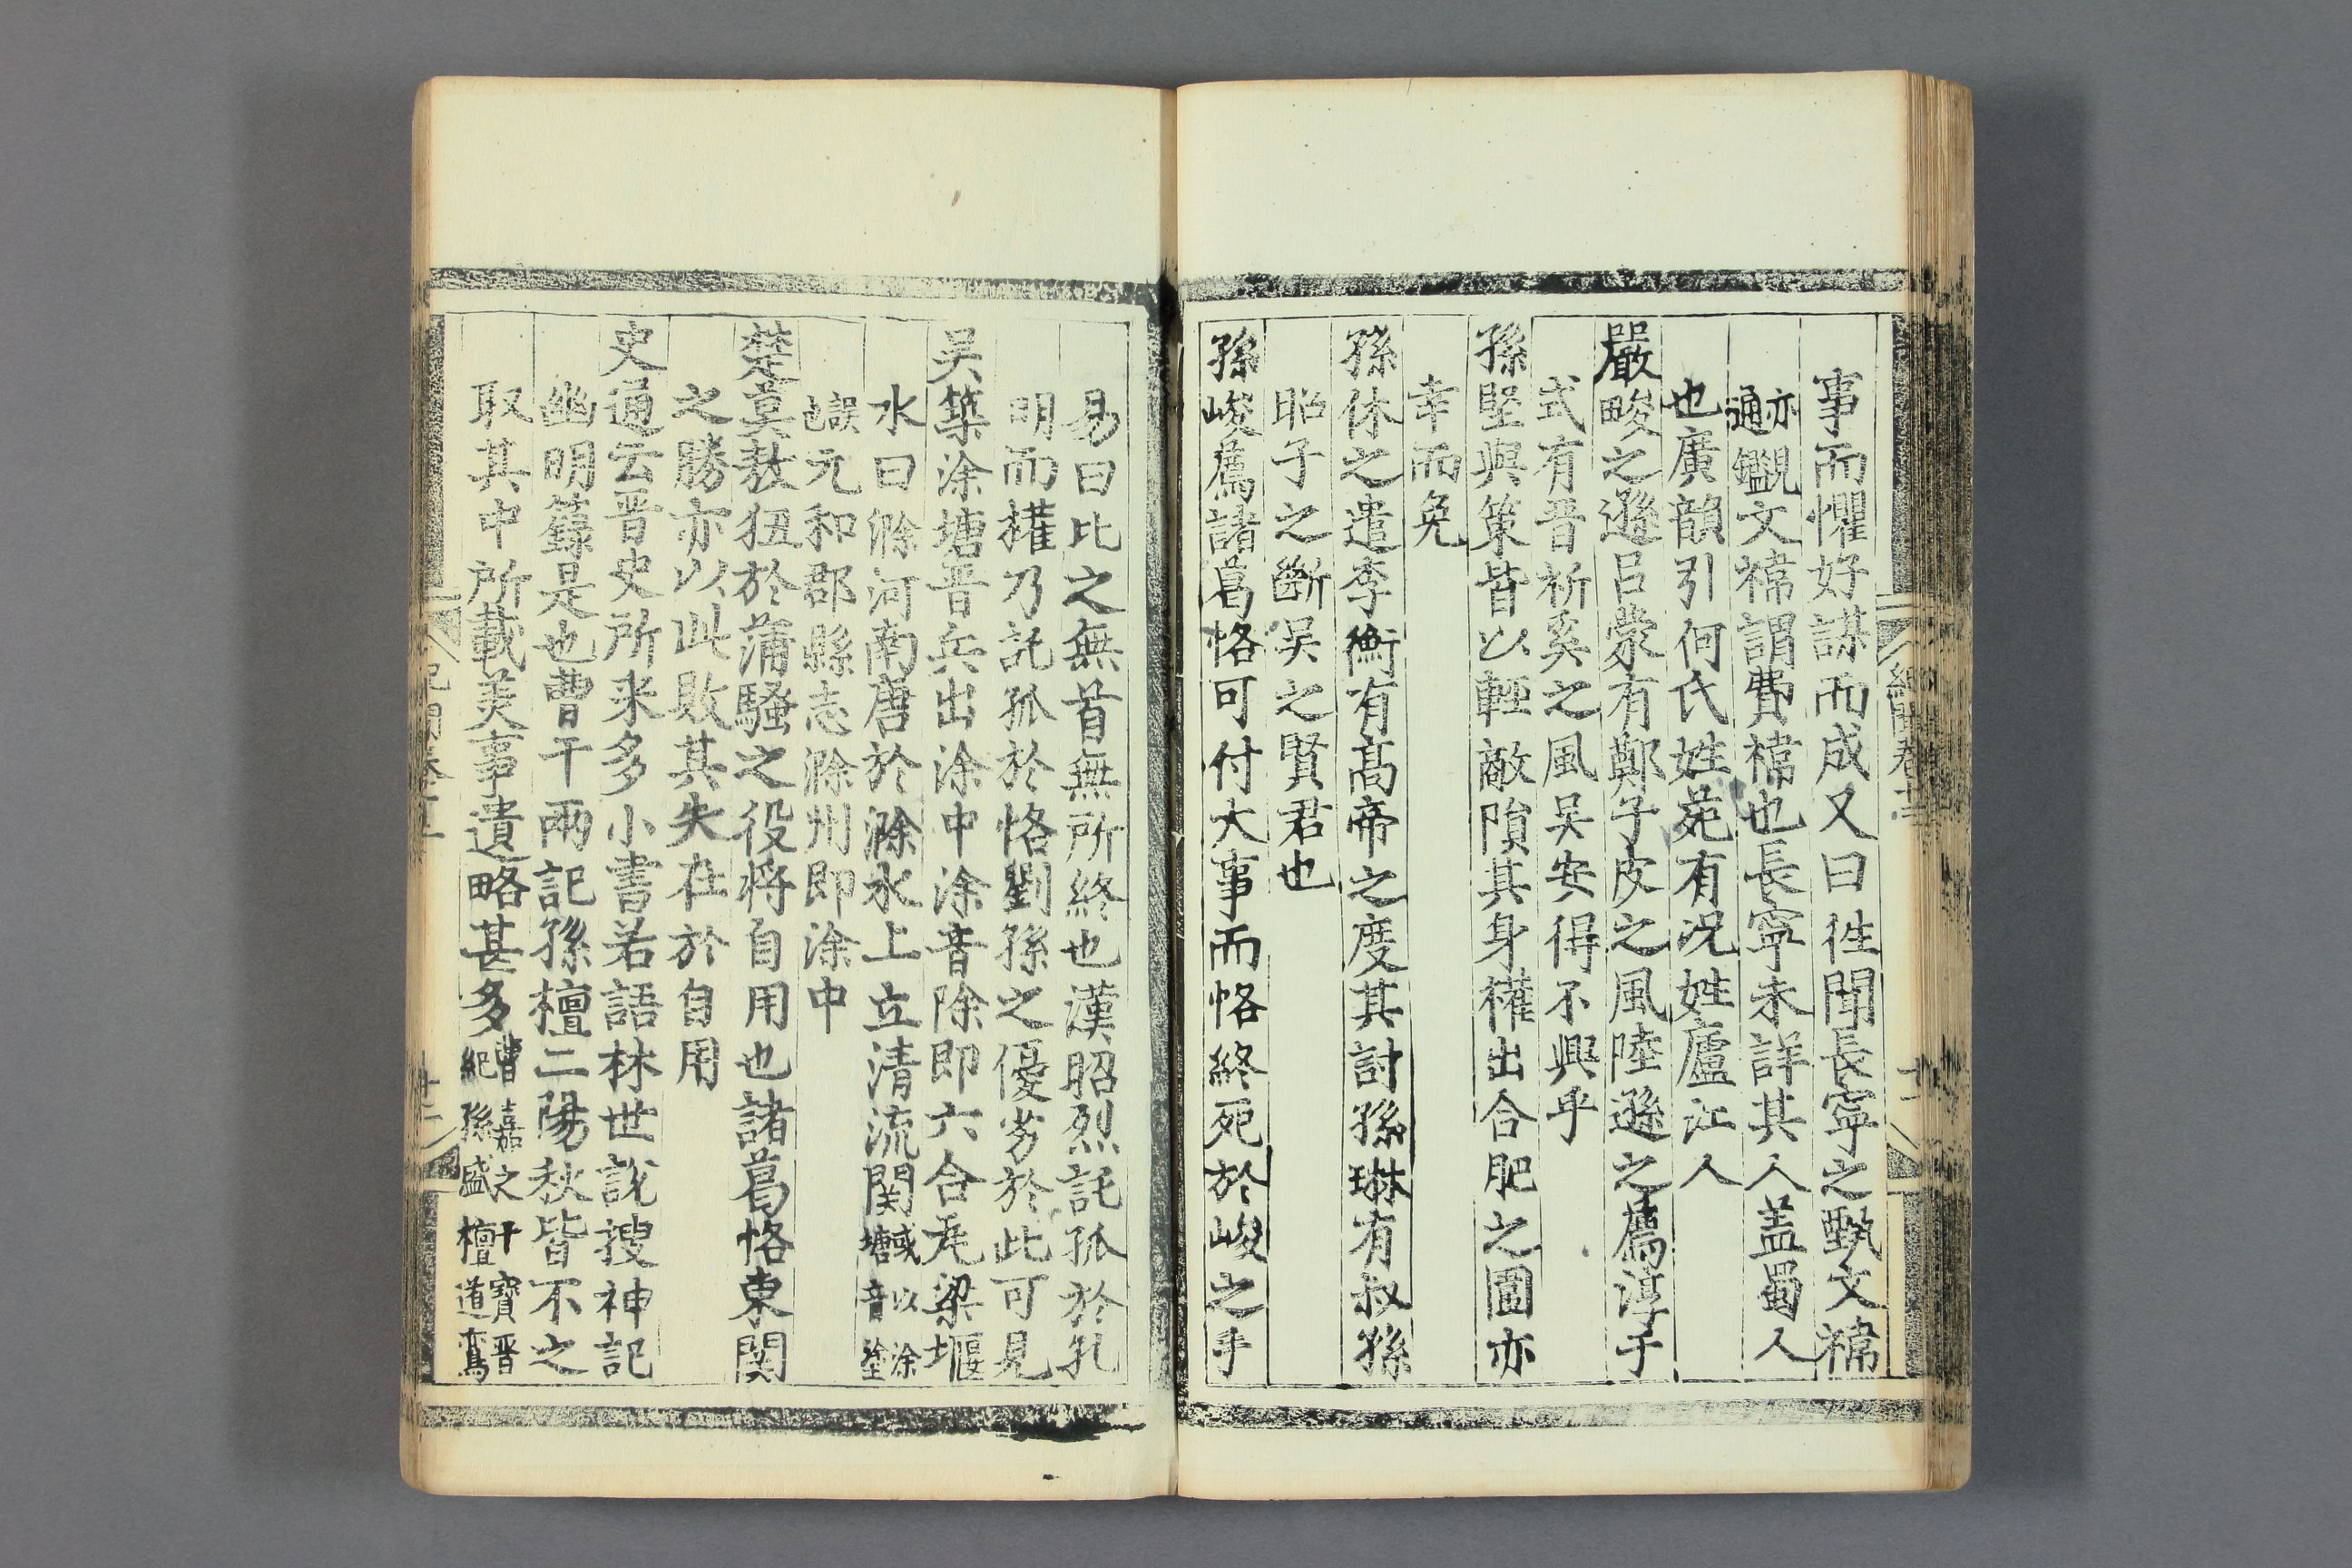 事而懼好謀而成又曰徃聞長寧之甄文禕
亦覩
通鑑文禕謂費禕也長寧未詳其人盖蜀人
也廣韻引何氏姓苑有况姓廬江人
嚴畯之遜吕蒙有鄭子皮之風陸遜之薦淳于
式有晋祈奚之風吴安得不興乎
孫堅與策皆以輕敵隕其身權出合肥之圍亦
幸而免
孫休之遣李衡有髙帝之度其討孫琳有叔孫
昭子之斷吴之賢君也
孫峻薦諸葛恪可付大事而恪終死於峻之手
易曰比之無首無所終也漢昭烈託孤於孔
明而權乃託孤於恪劉孫之優劣於此可見
吴築涂塘晋兵出涂中涂音除即六合瓦梁堰
水曰滁河南唐於滁水上立清流関或以涂
塘音塗
誤
也元和郡縣志滁州即涂中
楚莫敖狃於蒲騷之役将自用也諸葛恪東関
之勝亦以此敗其失在於自用
史通云晋史所采多小書若語林世説搜神記
幽明籙是也曹干兩記孫檀二陽秋皆不之
取其中所載美事遺略甚多曹嘉之干寳晋
紀孫盛檀道鸞